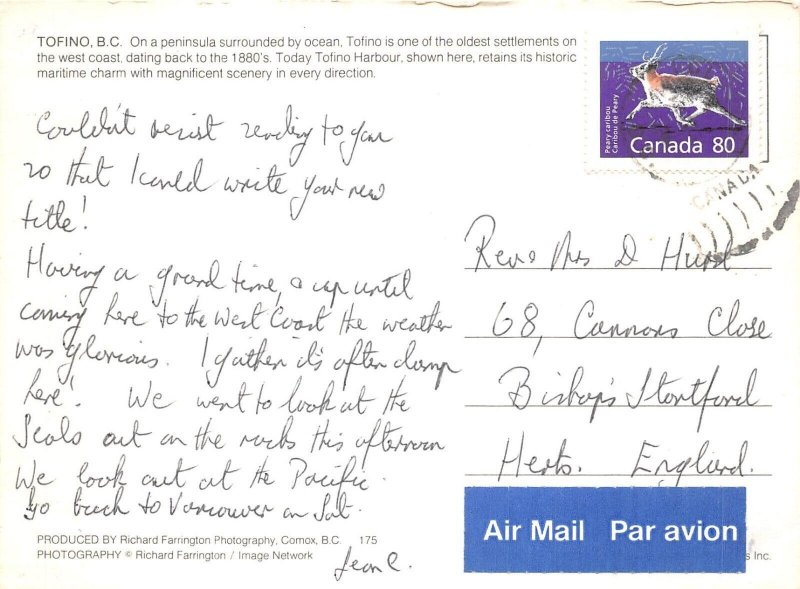 TOFINO, B.C. On a peninsula surrounded by ocean, Tofino is one of the oldest settlements on
the west coast, dating back to the 1880's. Today Tofino Harbour, shown here, retains its historic
maritime charm with magnificent scenery in every direction.
Peary caribou
Caribou de Peary
Canada 80
CANADA
Couldn't resist sending to you
so that I could write your new
title!
Having a grand time, &
until
coming here to the West Coast the weather
was glorious. I gather it's often damp
here! We went to look at the
Seals out on the rocks this afternoon
We look out at the Pacific.
Go back to Vancouver on Sat.
Jean C.
Rev. Mrs D Hurst
68, Cannons Close
Bishop's Stortford
Herts. England.
Air Mail Par avion
PRODUCED BY Richard Farrington Photography, Comox, B.C. 175
PHOTOGRAPHY © Richard Farrington / Image Network
s Inc.